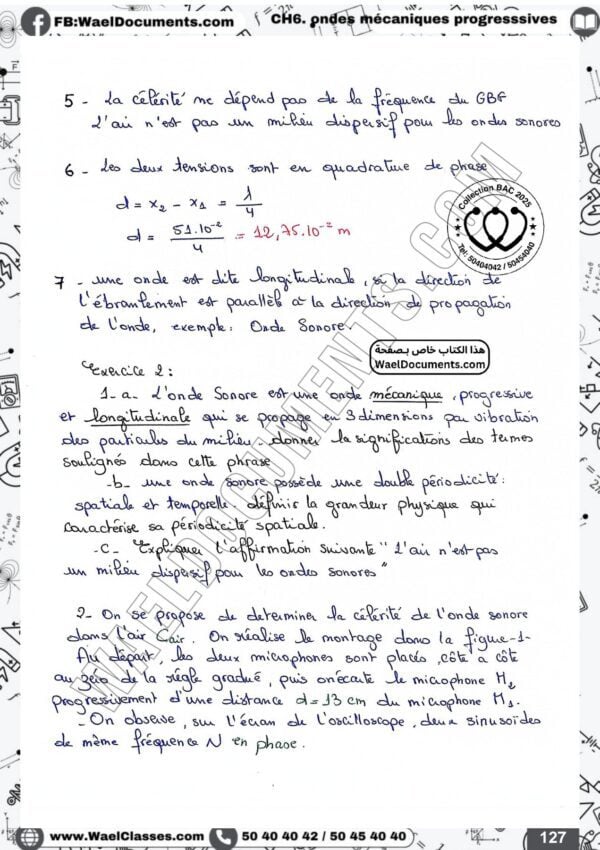 FB:WaelDocuments.com
CH6. ondes mécaniques progresssives
5 - La célérité ne dépend pas de la fréquence du GBF
L'air n'est pas un milieu dispersif pour les ondes sonores
6 - Les deux tensions sont en quadrature de phase
d = x₂ - x₁ = λ/4
d = 51.10⁻²/4 = 12,75.10⁻² m
Collection BAC 2025
Tel: 50404042 / 50454040
7 - une onde est dite longitudinale, si la direction de
l'ébranlement est parallèle à la direction de propagation
de l'onde, exemple: Onde Sonore.
هذا الكتاب خاص بصفحة
WaelDocuments.com
Exercice 2:
1- a- L'onde Sonore est une onde mécanique, progressive
et longitudinale qui se propage en 3 dimensions par vibration
des particules du milieu. donner la significations des termes
soulignés dans cette phrase
-b- une onde sonore possède une double périodicité:
spatiale et temporelle. définir la grandeur physique qui
caractérise sa périodicité spatiale.
-c- Expliquer l'affirmation suivante " L'air n'est pas
un milieu dispersif pour les ondes sonores"
2- On se propose de determiner la célérité de l'onde sonore
dans l'air Cair. On réalise le montage dans la figure-1-
Au départ, les deux microphones sont placés, côte à côte
au zéro de la règle gradué, puis on écarte le microphone M₂
progressivement d'une distance d=13 cm du microphone M₁.
- On observe, sur l'écran de l'oscilloscope, deux sinusoïdes
de même fréquence N en phase.
WAELDOCUMENTS.COM
www.WaelClasses.com
50 40 40 42 / 50 45 40 40
127